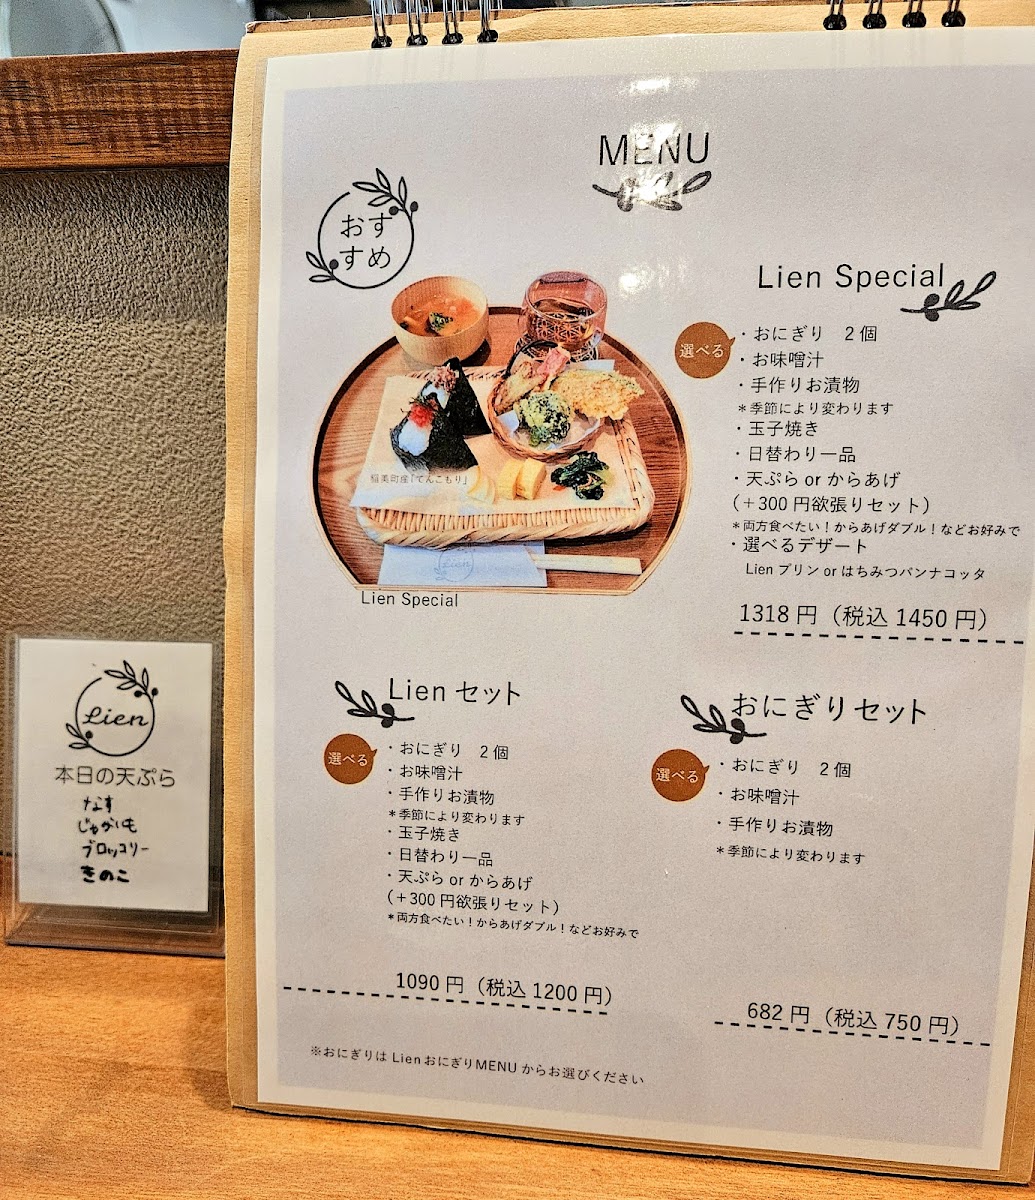 MENU
おす
すめ
Lien Special
選べる
・おにぎり 2個
・お味噌汁
・手作りお漬物
＊季節により変わります
・玉子焼き
・日替わり一品
・天ぷら or からあげ
(＋300円欲張りセット)
＊両方食べたい！からあげダブル！などお好みで
・選べるデザート
Lienプリン or はちみつパンナコッタ
1318円（税込1450円）
稲美町産「てんこもり」
Lien
Lien Special
Lienセット
選べる
・おにぎり 2個
・お味噌汁
・手作りお漬物
＊季節により変わります
・玉子焼き
・日替わり一品
・天ぷら or からあげ
(＋300円欲張りセット)
＊両方食べたい！からあげダブル！などお好みで
1090円（税込1200円）
おにぎりセット
選べる
・おにぎり 2個
・お味噌汁
・手作りお漬物
＊季節により変わります
682円（税込750円）
※おにぎりは LienおにぎりMENUからお選びください
Lien
本日の天ぷら
なす
じゃがいも
ブロッコリー
きのこ